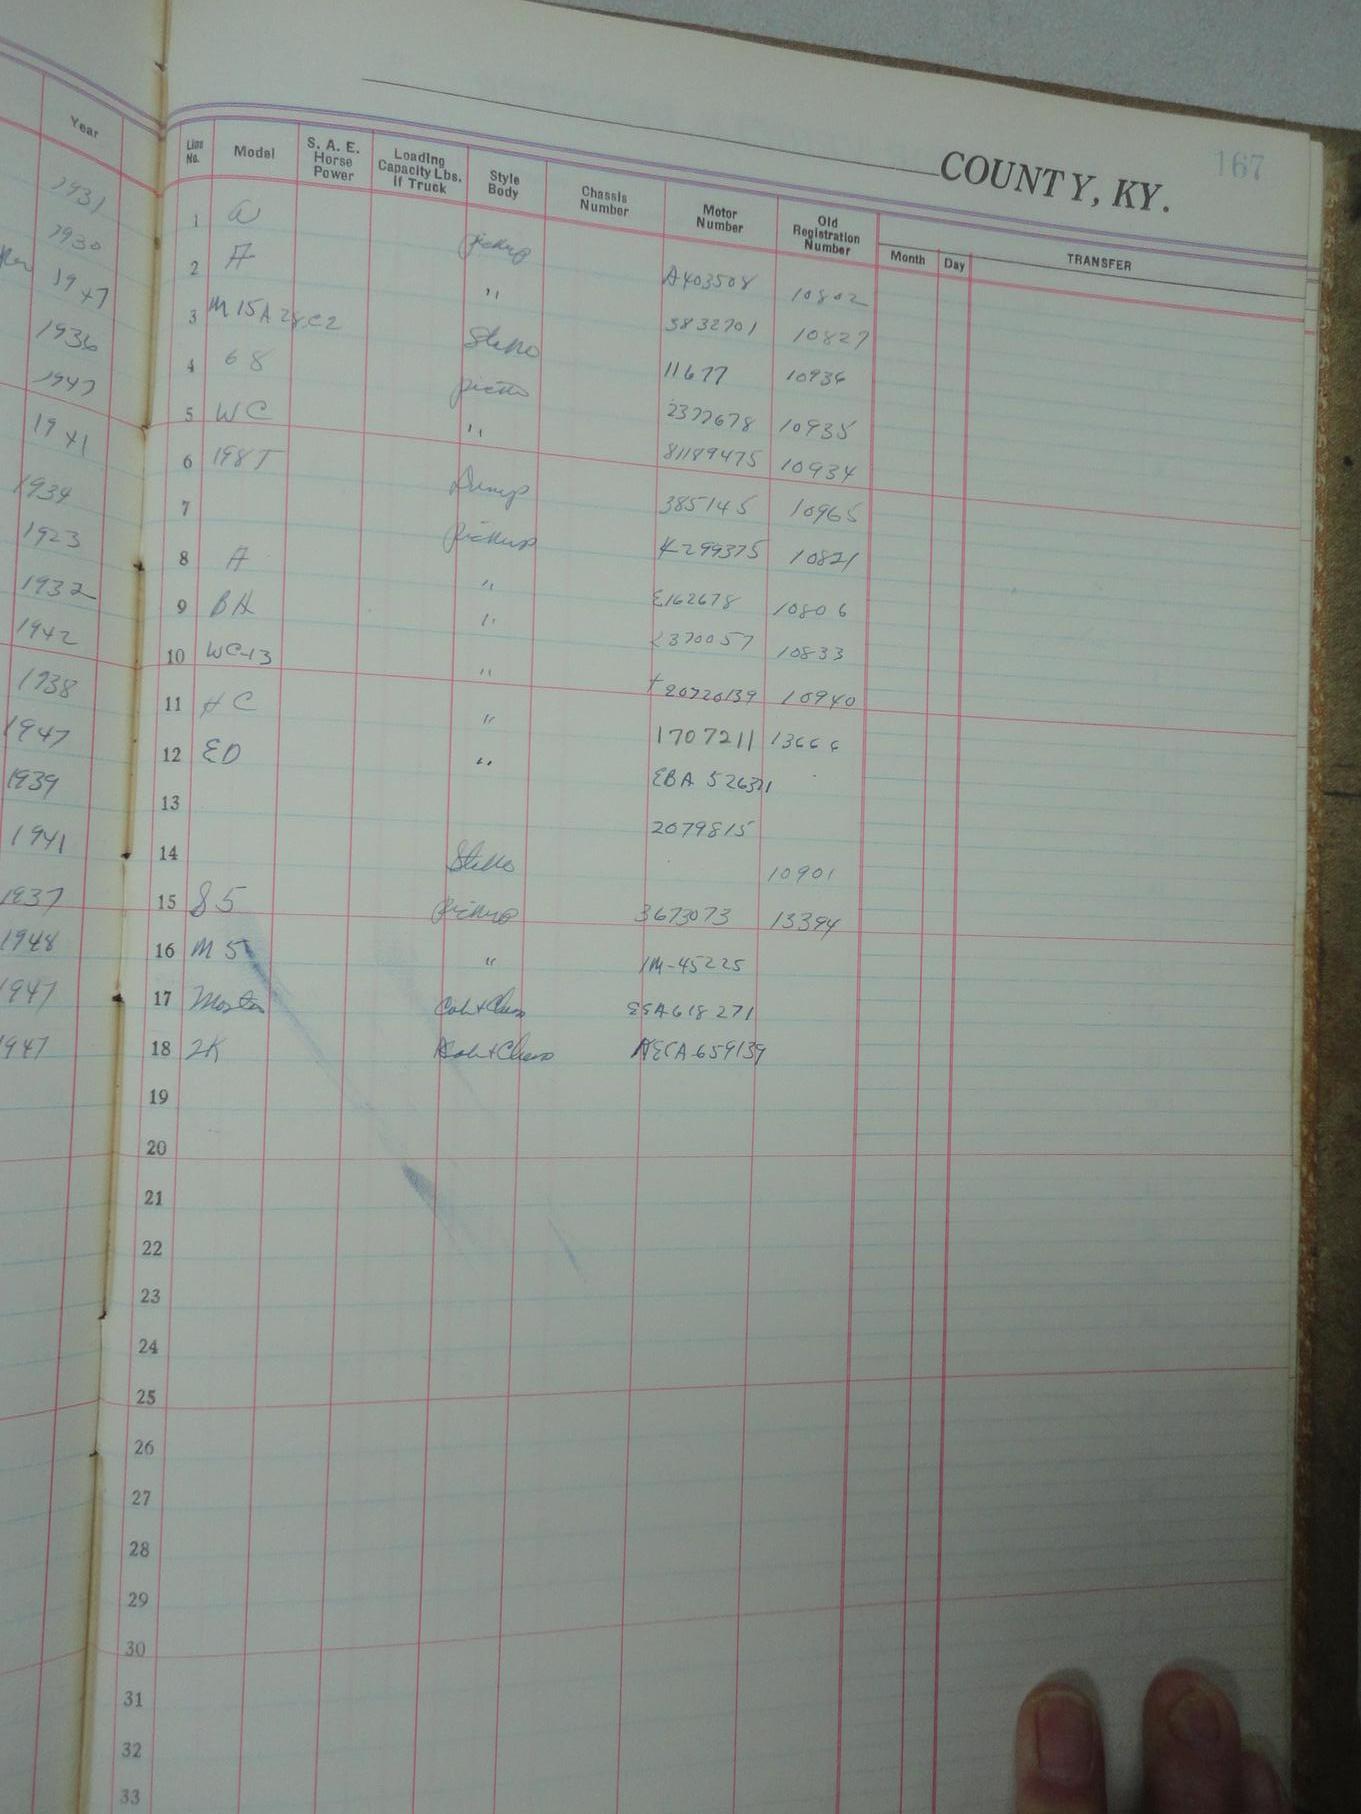 COUNTY, KY.
167
Year
Line No.
Model
S. A. E. Horse Power
Loading Capacity Lbs. If Truck
Style Body
Chassis Number
Motor Number
Old Registration Number
Month
Day
TRANSFER
1931 1 pickup A403508 10802
1930 2 A " 3832701 10827
1947 3 M15A 11677 10936
1936 4 68 2372678 10935
1947 5 WC " 81189475 10934
1941 6 198T Dump 385145 10965
1934 7 Pickup K299375 10821
1923 8 A " E162678 10806
1932 9 BA " 370057 10833
1942 10 WC-13 " 20720139 10940
1938 11 HC " 1707211 13666
1947 12 ED " EBA 526311
1939 13 2079815
1941 14 10901
1937 15 85 pickup 3673073 13394
1948 16 M5 " 1M-45225
1947 17 EEA618271
1947 18 2K
19
20
21
22
23
24
25
26
27
28
29
30
31
32
33